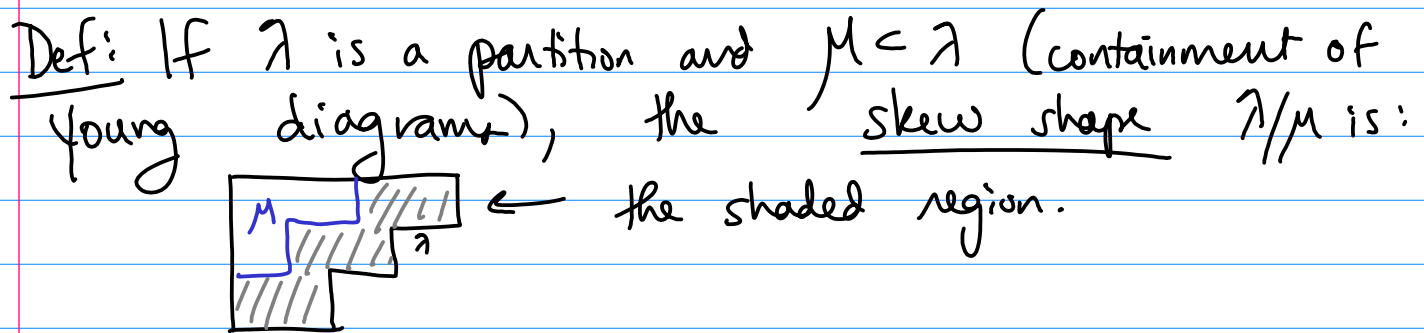 Def: If λ is a partition and μ ⊂ λ (containment of
Young diagrams), the skew shape λ/μ is:
μ λ ← the shaded region.